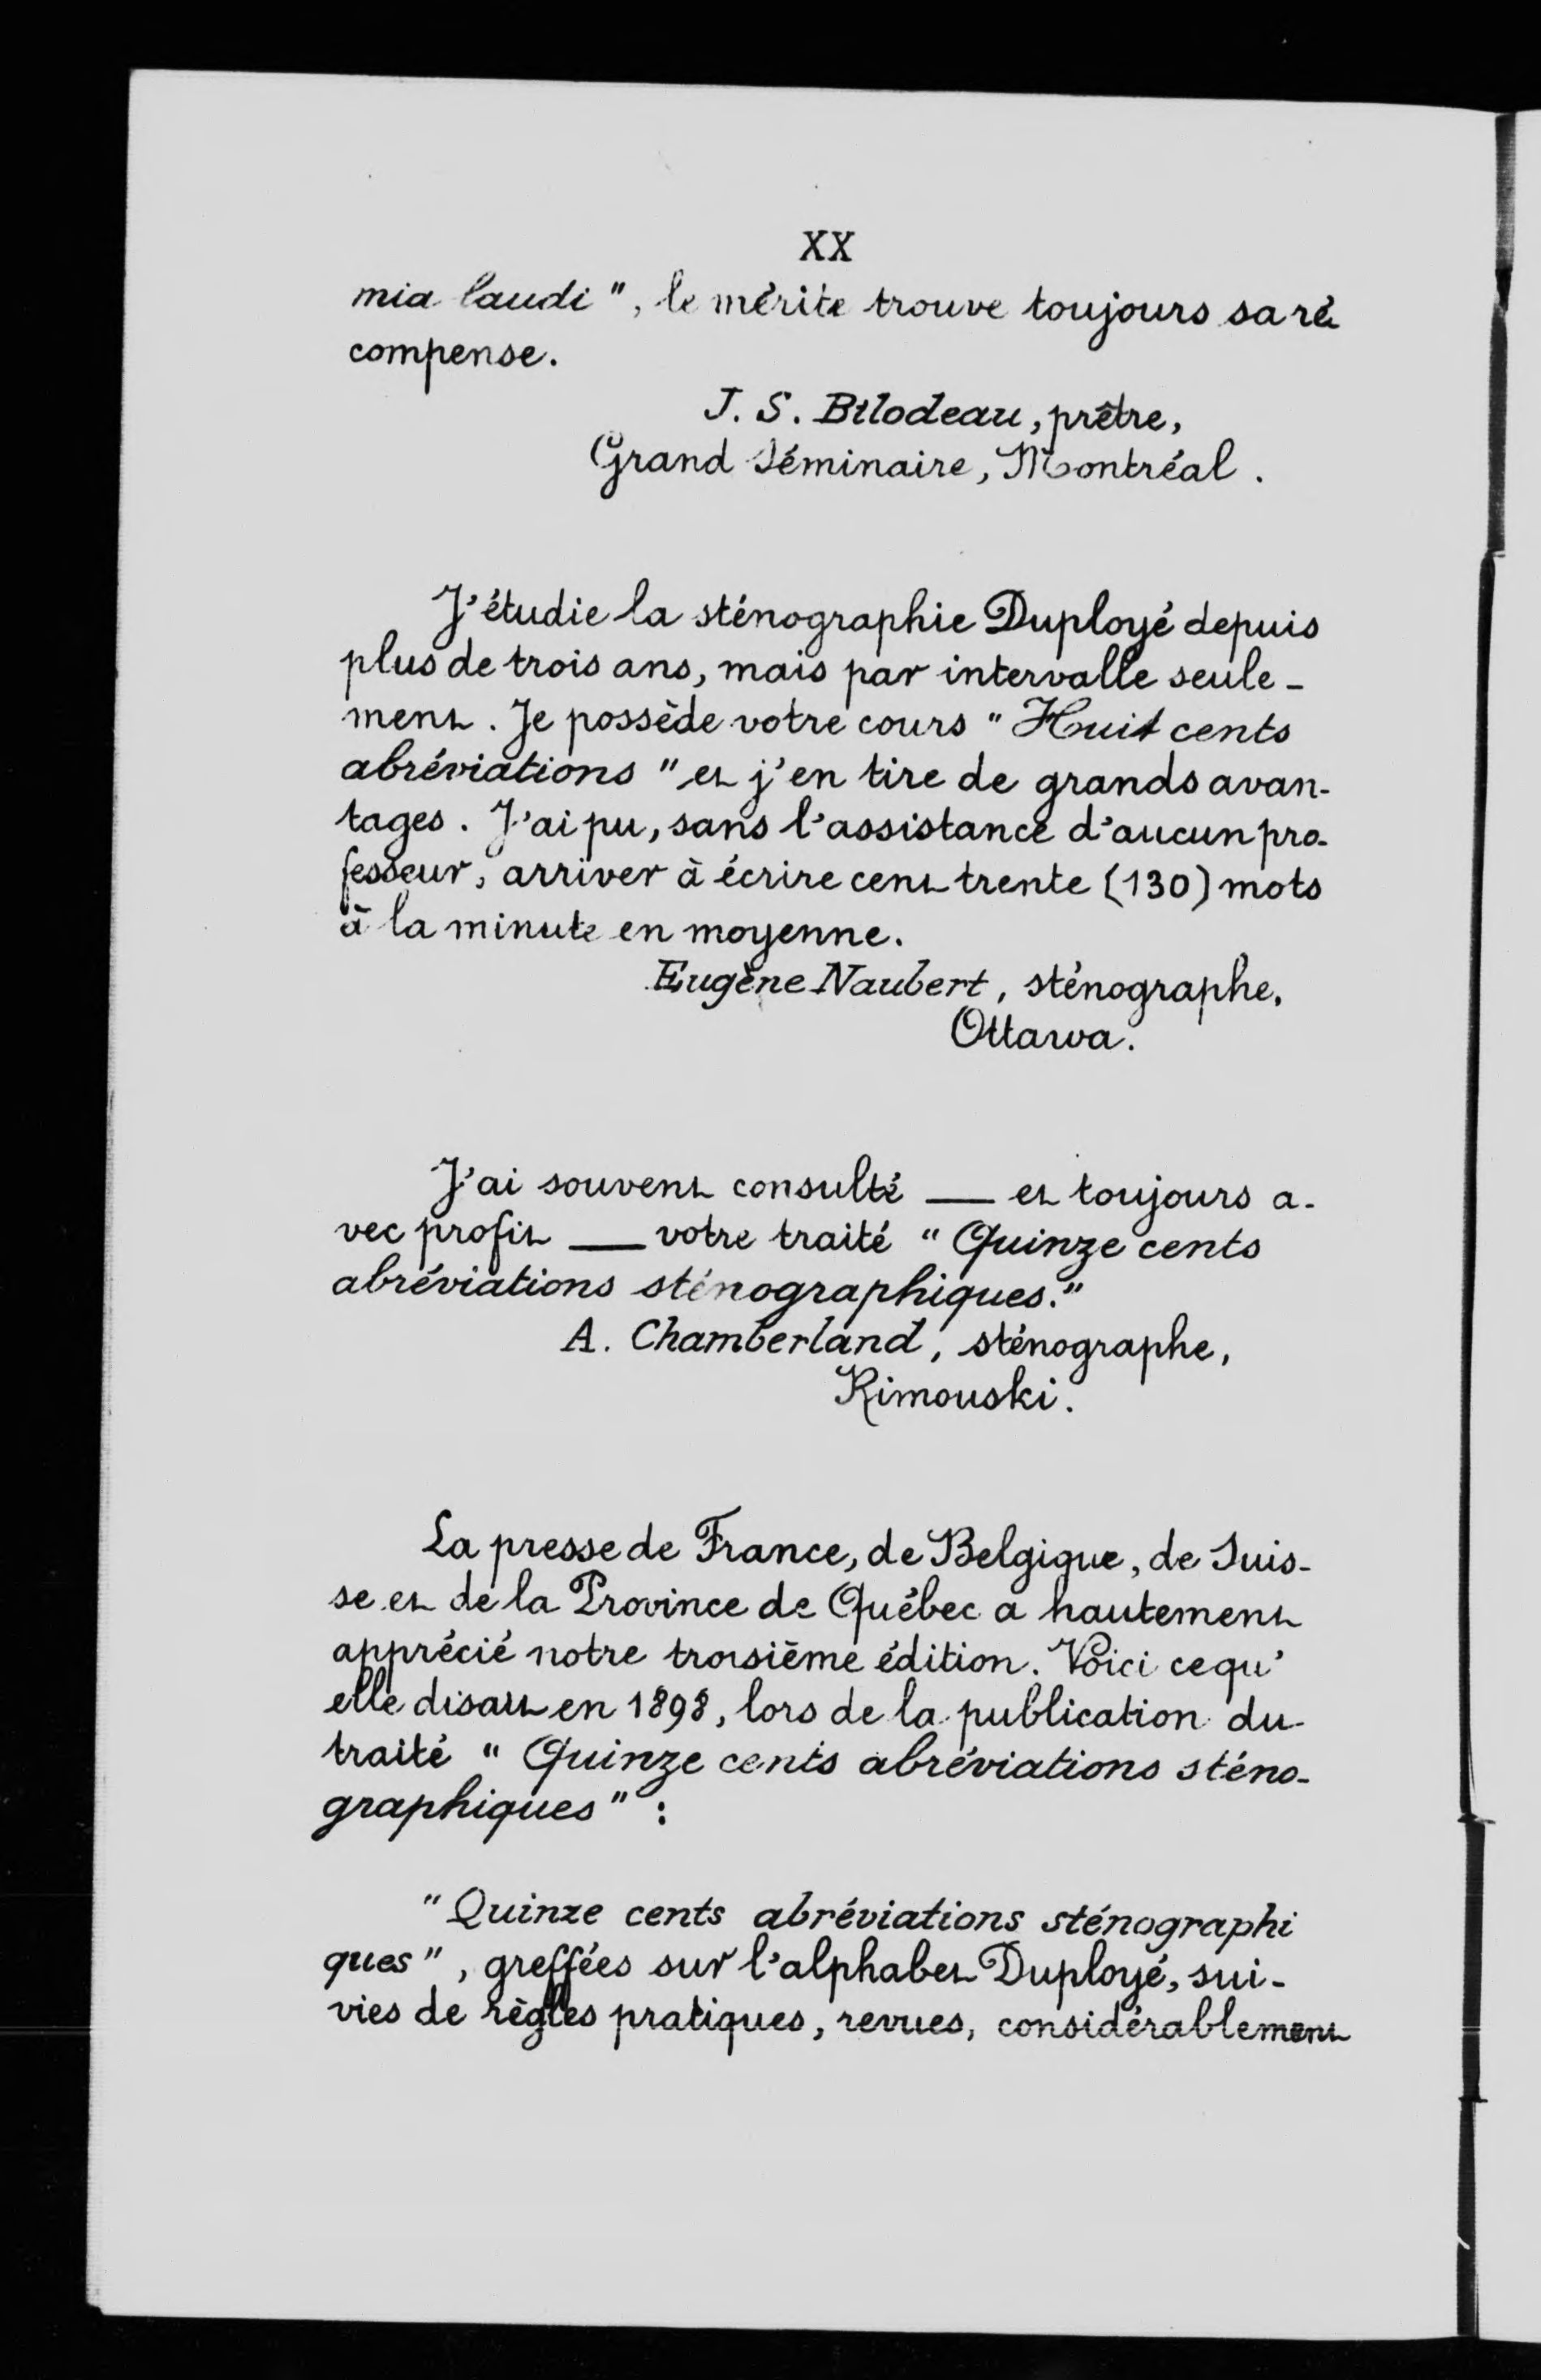 XX
mia laudi", le mérite trouve toujours sa ré
compense.
J. S. Bilodeau, prêtre,
Grand Séminaire, Montréal.
J'étudie la sténographie Duployé depuis
plus de trois ans, mais par intervalle seule-
ment. Je possède votre cours "Huit cents
abréviations" et j'en tire de grands avan-
tages. J'ai pu, sans l'assistance d'aucun pro-
fesseur, arriver à écrire cent trente (130) mots
à la minute en moyenne.
Eugène Naubert, sténographe,
Ottawa.
J'ai souvent consulté — et toujours a-
vec profit — votre traité "Quinze cents
abréviations sténographiques."
A. Chamberland, sténographe,
Rimouski.
La presse de France, de Belgique, de Suis-
se et de la Province de Québec a hautement
apprécié notre troisième édition. Voici ce qu'
elle disait en 1898, lors de la publication du
traité "Quinze cents abréviations sténo-
graphiques":
"Quinze cents abréviations sténographi
ques", greffées sur l'alphabet Duployé, sui-
vies de règles pratiques, revues, considérablement